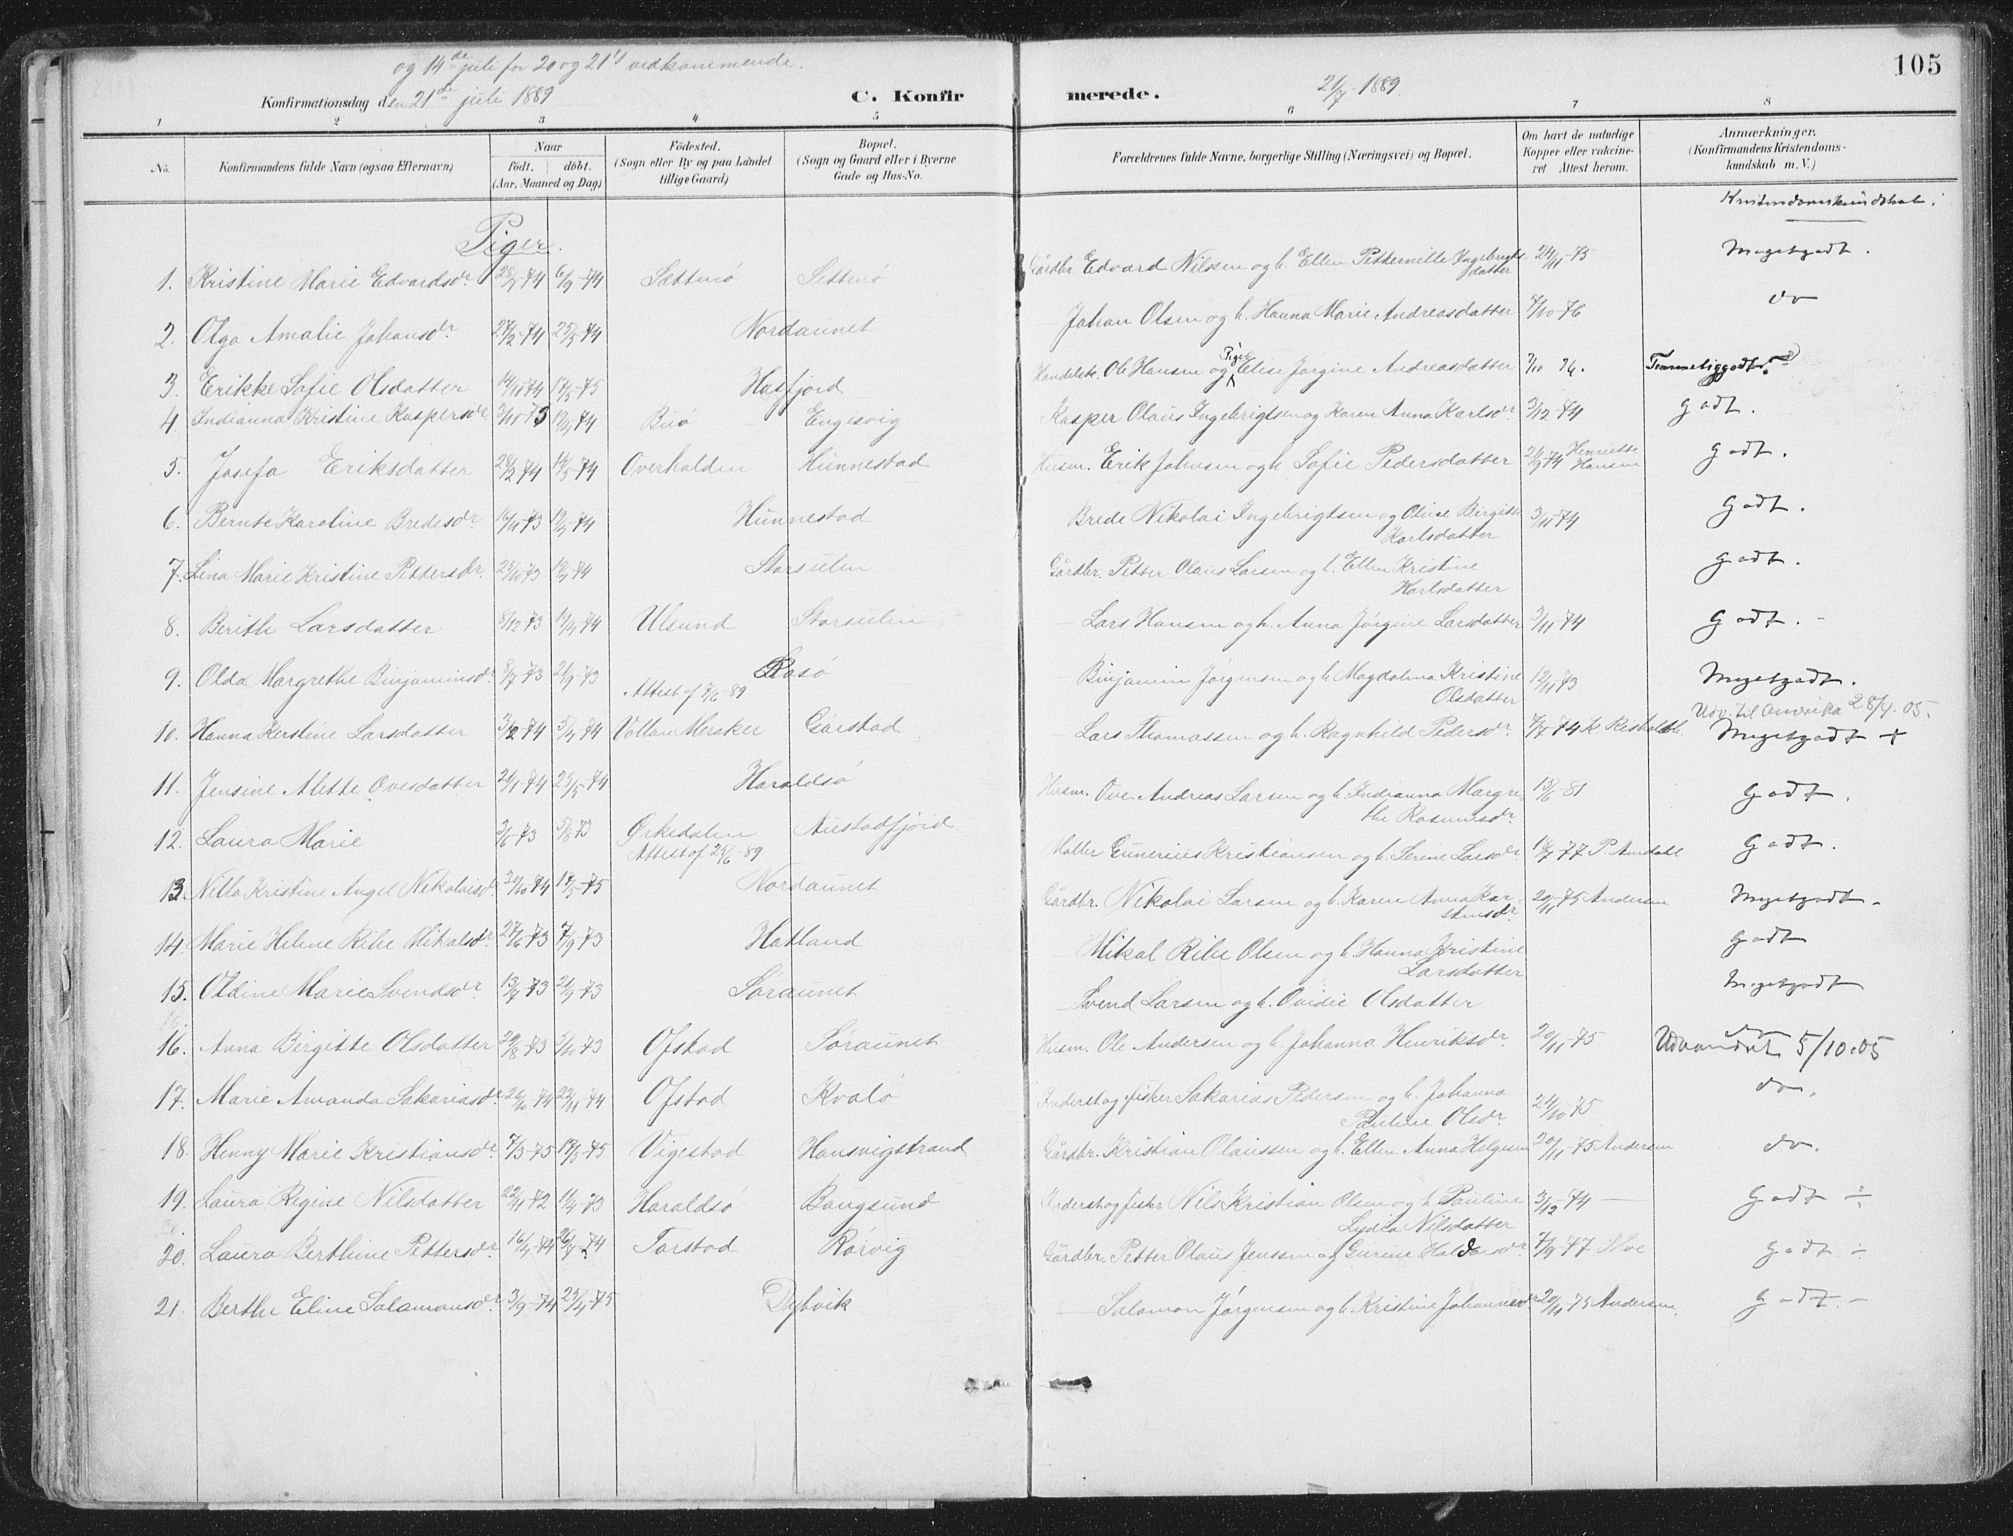 og 14de juli for 20 og 21's vedkommende.
Konfirmationsdag den 21de juli 1889
C. Konfirmerede.
21/7-1889.
105
1 2 3 4 5 6 7 8
No. Konfirmandens fulde Navn (ogsaa Efternavn) Naar født. døbt. (Aar, Maaned og Dag) Fødested. (Sogn eller By og paa Landet tillige Gaard) Bopæl. (Sogn og Gaard eller i Byerne Gade og Hus-No. Forældrenes fulde Navne, borgerlige Stilling (Næringsvei) og Bopæl. Om havt de naturlige Kopper eller vakcineret Attest herom. Anmærkninger. (Konfirmandens Kristendomskundskab m. V.)
Kristendomskundskab.
Piger.
1. Kristine Marie Edvardsdr. -74 6/9-74 Sættenø Settenø Gårdbr. Edvard Nilssen og h. Ellen Petternille Ingebrigtsdatter 24/11-75 Megetgodt.
2. Olga Amalie Johansdr 27/2-74 25/5-74 Nordaunet Johan Olsen og h. Hanna Marie Andreasdatter 7/10-76 do
3. Erikke Sofie Olsdatter 14/11 74 17/5-75 Hasfjord Handelsk. Ole Hansen og Pige Elise Jørgine Andreasdatter 7/10 76. Temmeliggodt.
4. Indianna Kristine Kaspersdr -73 -74 Buø Engesvig Kasper Olaus Ingebrigtsen og Karen Anna Karlsdr 3/12-74 godt.
5. Josefa Eriksdatter 28/2-74 14/5-74 Overhalden Hunnestad Husm. Erik Johnsen og h. Sofie Pedersdatter 21/9-74 Henriette Hansen godt.
6. Bernte Karoline Bredesdr 16/11-73 -74 Hunnestad Brede Nikolai Ingebrigtsen og Oline Birgitte Karlsdatter 3/11-74 godt.
7. Lina Marie Kristine Pettersdr. 25/10-73 -74 Storsulen Gårdbr. Petter Olaus Larsen og h. Ellen Kristine Karlsdatter godt.
8. Berith Larsdatter 8/12-73 -74 Ulsund Storsulen - Lars Hansen og h. Anna Jørgine Larsdatter 3/11-74 godt. -
9. Olda Margrethe Binjaminsdr 8/7-73 21/9-73 Rosø - Binjamin Jørgensen og h. Magdalena Kristine Olsdatter 12/11-73 Megetgodt.
Attest af 7/6-89 Udv. til Amerika 28/4.05.
10. Hanna Kerstine Larsdatter 3/2-74 5/4-74 Vollan Meraker Garstad - Lars Thomassen og h. Ragnhild Pedersdr. 7/7-74 K Resholdt Megetgodt +
11. Jensine Alette Ovesdatter 21/1-74 25/5-74 Haraldsø Husm. Ove Andreas Larsen og h. Indianna Margrethe Rasmusdr 13/6-81 godt.
12. Laura Marie 3/6-73 5/8 73 Ørkedalen Austadfjord Møller Gunerius Kristiansen og h. Serine Larsdr. -77 P. Amdahl godt.
Attest af 25/6-89
13. Nilla Kristine Angel Nikolaisdr 20/10-74 17/5-75 Nordaunet Gårdbr. Nikolai Larsen og h. Karen Anna Karstensdr 20/11-75 Andersen Megetgodt.
14. Marie Helene Ribe Mikalsdr. 27/6-73 7/9-73 Hatland - Mikal Ribe Olsen og h. Hanna Kristine Larsdatter godt
15. Oldine Marie Svendsdr. 13/7-73 21/9-73 Søraunet - Svend Larsen og h. Ovidie Olsdatter Megetgodt
16. Anna Birgitte Olsdatter 29/8-73 5/10-73 Ofstad Søraunet Husm. Ole Andersen og h. Johanna Henriksdr 20/11-75 do Udvandret 5/10.05
17. Marie Amanda Sakariasdr 26/10-74 22/11-74 Ofstad Kvalø Inderst og fisker Sakarias Pedersen og h. Johanna Pauline Olsdr 24/10-75 do.
18. Henny Marie Kristiansdr 7/3-75 17/5-75 Vigestad Hansvigstrand Gårdbr. Kristian Olaussen og h. Ellen Anna Helgesen 20/11-75 Andersen do.
19. Laura Regine Nilsdatter 22/11-72 -73 Haraldsø Baugsund Inderst og fisker Nils Kristian Olsen og h. Pauline Lydia Nilsdatter 3/12-74 - godt ÷
20. Laura Berthine Pettersdr 16/7-74 26/7-74 Torstad Rørvig Gårdbr. Petter Olaus Jenssen og Gurine Haldorsdr 7/9-77 Moe godt ÷
21. Berthe Eline Salamonsdr 3/9-74 25/4-75 Dybvik - Salamon Jørgensen og h. Kristine Johannesdr 20/11-75 Andersen. godt. -